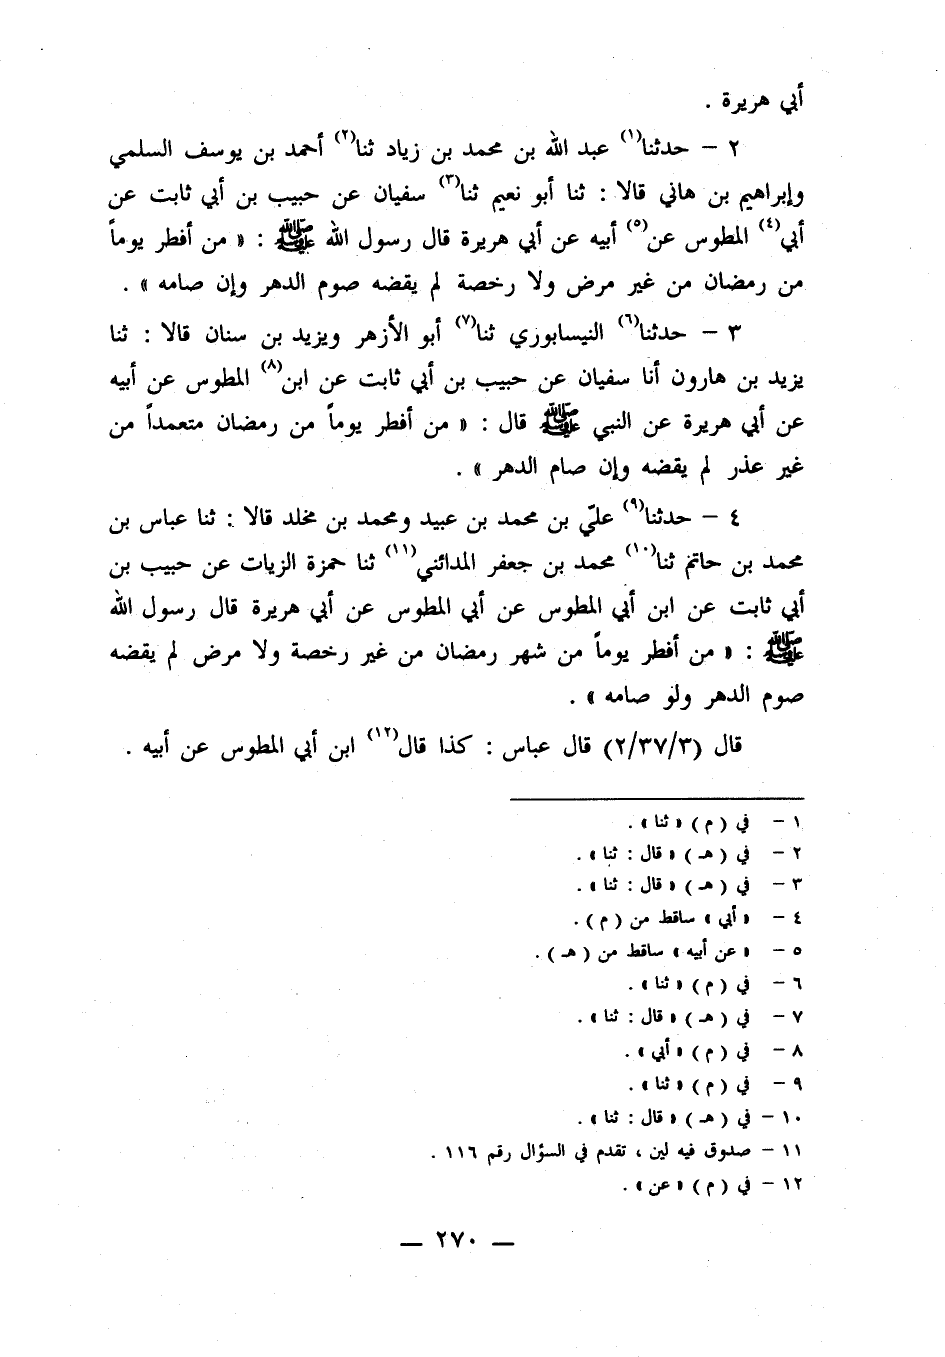 أبي هريرة .
٢ – حدثنا(١) عبد الله بن محمد بن زياد ثنا(٢) أحمد بن يوسف السلمي
وإبراهيم بن هاني قالا : ثنا أبو نعيم ثنا(٣) سفيان عن حبيب بن أبي ثابت عن
أبي(٤) المطوس عن(٥) أبيه عن أبي هريرة قال رسول الله ﷺ : « من أفطر يوماً
من رمضان من غير مرض ولا رخصة لم يقضه صوم الدهر وإن صامه » .
٣ – حدثنا(٦) النيسابوري ثنا(٧) أبو الأزهر ويزيد بن سنان قالا : ثنا
يزيد بن هارون أنا سفيان عن حبيب بن أبي ثابت عن ابن(٨) المطوس عن أبيه
عن أبي هريرة عن النبي ﷺ قال : « من أفطر يوماً من رمضان متعمداً من
غير عذر لم يقضه وإن صام الدهر » .
٤ – حدثنا(٩) عليّ بن محمد بن عبيد ومحمد بن مخلد قالا : ثنا عباس بن
محمد بن حاتم ثنا(١٠) محمد بن جعفر المدائني(١١) ثنا حمزة الزيات عن حبيب بن
أبي ثابت عن ابن أبي المطوس عن أبي المطوس عن أبي هريرة قال رسول الله
ﷺ : « من أفطر يوماً من شهر رمضان من غير رخصة ولا مرض لم يقضه
صوم الدهر ولو صامه » .
قال (٢/٣٧/٣) قال عباس : كذا قال(١٢) ابن أبي المطوس عن أبيه .
١ – في ( م ) « ثنا » .
٢ – في ( هـ ) « قال : ثنا » .
٣ – في ( هـ ) « قال : ثنا » .
٤ – « أبي » ساقط من ( م ) .
٥ – « عن أبيه » ساقط من ( هـ ) .
٦ – في ( م ) « ثنا » .
٧ – في ( هـ ) « قال : ثنا » .
٨ – في ( م ) « أبي » .
٩ – في ( م ) « ثنا » .
١٠ – في ( هـ ) « قال : ثنا » .
١١ – صدوق فيه لين ، تقدم في السؤال رقم ١١٦ .
١٢ – في ( م ) « عن » .
— ٢٧٠ —